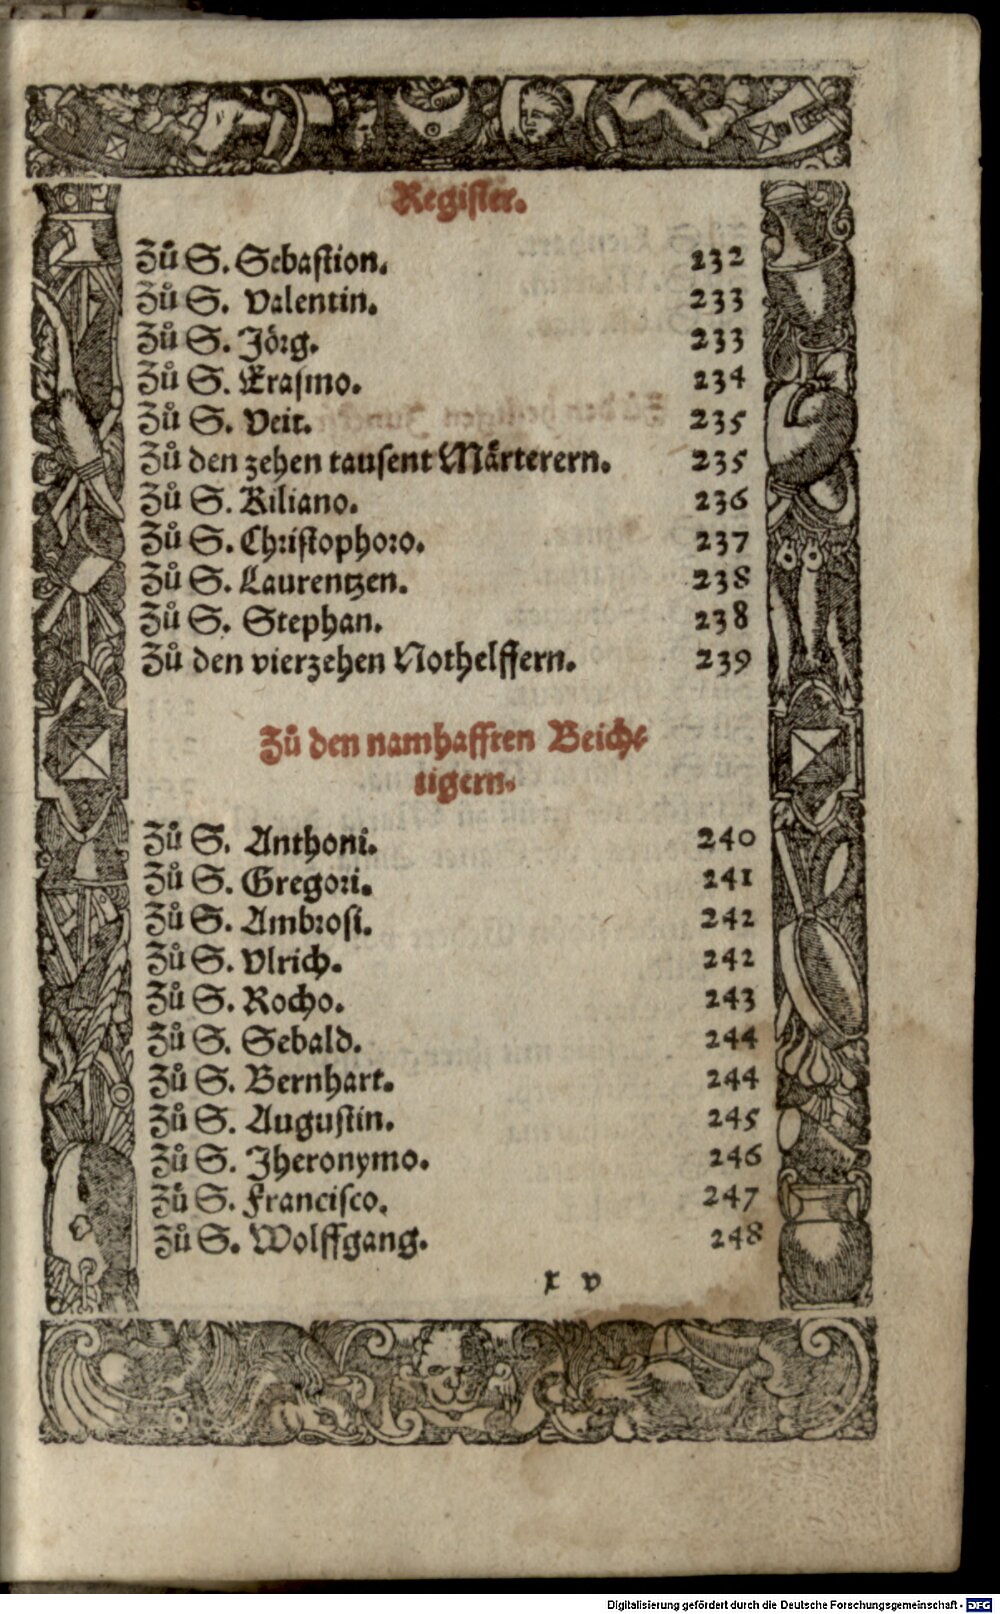 Register.
Zů S. Sebastion. 232
Zů S. Valentin. 233
Zů S. Jörg. 233
Zů S. Erasmo. 234
Zů S. Veit. 235
Zů den zehen tausent Märterern. 235
Zů S. Kiliano. 236
Zů S. Christophoro. 237
Zů S. Laurentzen. 238
Zů S. Stephan. 238
Zů den vierzehen Nothelffern. 239
Zů den namhafften Beich-
tigern.
Zů S. Anthoni. 240
Zů S. Gregori. 241
Zů S. Ambrosi. 242
Zů S. Vlrich. 242
Zů S. Rocho. 243
Zů S. Sebald. 244
Zů S. Bernhart. 244
Zů S. Augustin. 245
Zů S. Jheronymo. 246
Zů S. Francisco. 247
Zů S. Wolffgang. 248
x v
Digitalisierung gefördert durch die Deutsche Forschungsgemeinschaft - DFG